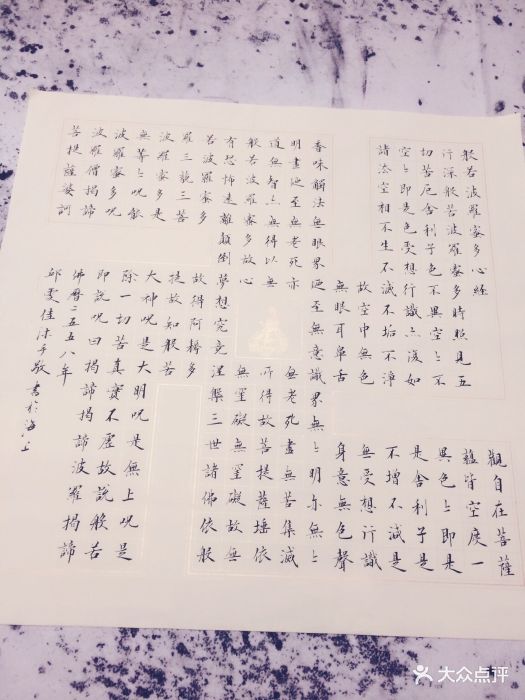 般若波羅蜜多心經
觀自在菩薩
行深般若波羅蜜多時照見五
蘊皆空度一
切苦厄舍利子色不異空〻不
異色〻即是
空〻即是色受想行識亦復如
是舍利子是
諸法空相不生不滅不垢不淨
不增不減是
故空中無色
無受想行識
無眼耳鼻舌
身意無色聲
香味觸法無眼界迺至無意識界無〻明亦無〻
明盡迺至無老死亦
無老死盡無苦集滅
道無智亦無得以無
所得故菩提薩埵依
般若波羅蜜多故心
無罣礙無罣礙故無
有恐怖遠離顛倒夢想究竟涅槃三世諸佛依般
若波羅蜜多
故得阿耨多
羅三藐三菩
提故知般若
波羅蜜多是
大神呪是大明呪是無上呪是
無等〻呪能
除一切苦真實不虛故說般若
波羅蜜多呪
即說呪曰揭諦揭諦波羅揭諦
波羅僧揭諦
菩提薩婆訶
佛曆二五五八年
邱雯佳沐手敬書於海上
大众点评